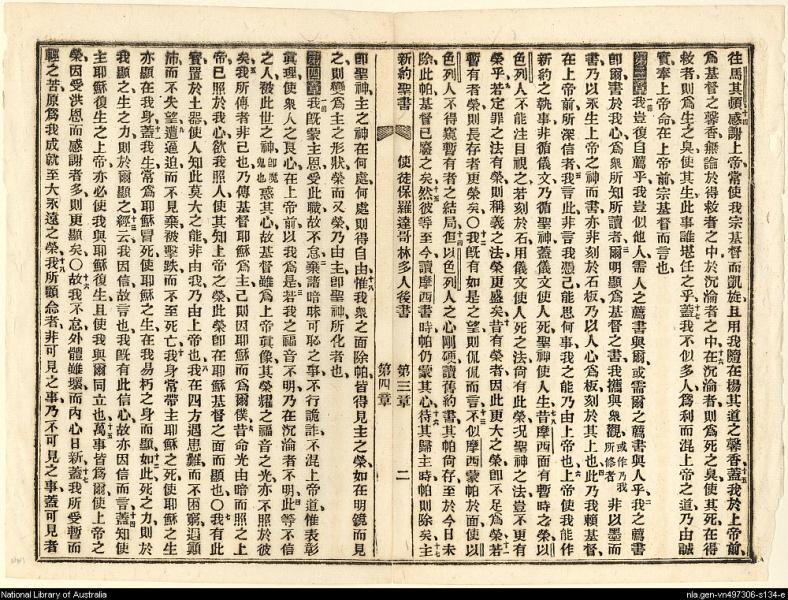 往馬其頓感謝上帝常使我宗基督而凱旋且用我隨在揚其道之馨香蓋我於上帝前
爲基督之馨香無論於得救者之中於沉淪者之中在沉淪者則爲死之臭使其死在得
救者則爲生之臭使其生此事誰堪任之乎蓋我不似多人爲利而混上帝之道乃由誠
實奉上帝命在上帝前宗基督而言也
第三章 一節 我豈復自薦乎我豈似他人需人之薦書與爾或需爾之薦書與人乎我之薦書
即爾書於我心爲衆所知所讀者爾明顯爲基督之書我攜與衆觀或作乃我所修者非以墨而
書乃以永生上帝之神而書亦非刻於石板乃以人心爲板刻於其上也此乃我賴基督
在上帝前所深信者我言此非言我憑己能思何事我之能乃由上帝也上帝使我能作
新約之執事非循儀文乃循聖神蓋儀文使人死聖神使人生昔摩西面有暫時之榮以
色列人不能注目視之若刻於石用儀文使人死之法尚有此榮況聖神之法豈不更有
榮乎若定罪之法有榮則稱義之法榮更盛矣昔有榮者因此更大之榮即不足爲榮若
暫有者榮則長存者更榮矣〇我既有如是之望則侃侃而言不似摩西蒙帕於面使以
色列人不得窺暫有者之結局但以色列人之心剛硬讀舊約書其帕尚存至於今日未
除此帕基督已廢之矣然彼等至今讀摩西書時帕仍蒙其心待其歸主時帕則除矣主
新約聖書 使徒保羅達哥林多人後書 第三章 第四章 二
即聖神主之神在何處何處則得自由惟我衆之面除帕皆得見主之榮如在明鏡而見
之則變爲主之形狀榮而又榮乃由主即聖神所化者也
第四章 一節 我既蒙主恩受此職故不怠棄諸暗昧可恥之事不行詭詐不混上帝道惟表彰
眞理使衆人之良心在上帝前以我爲是若我之福音不明乃在沉淪者不明此等不信
之人被此世之神即魔鬼也惑其心故基督雖爲上帝眞像其榮耀之福音之光亦不照於彼
矣我所傳者非己也乃傳基督耶穌爲主己則因耶穌而爲爾僕昔命光由暗而照之上
帝已照於我心欲我照人使其知上帝之榮此榮即在耶穌基督之面而顯也〇我有此
寶置於土器使人知此莫大之能非由我乃由上帝也我在四方遇患難而不困窮遇顚
沛而不失望遭逼迫而不見棄被擊跌而不至死亡我身常帶主耶穌之死使耶穌之生
亦顯在我身蓋我生常爲耶穌冒死使耶穌之生在我易朽之身而顯如此死之力則於
我顯之生之力則於爾顯之經云我因信故言也我既有此信心故亦因信而言蓋知使
主耶穌復生之上帝亦必使我與耶穌復生且使我與爾同立也萬事皆爲爾使上帝之
榮因受洪恩而感謝者多則更顯矣〇故我不怠外體雖壞而內心日新蓋我所受暫而
輕之苦原爲我成就至大永遠之榮我所顧念者非可見之事乃不可見之事蓋可見者
National Library of Australia
nla.gen-vn497306-s134-e